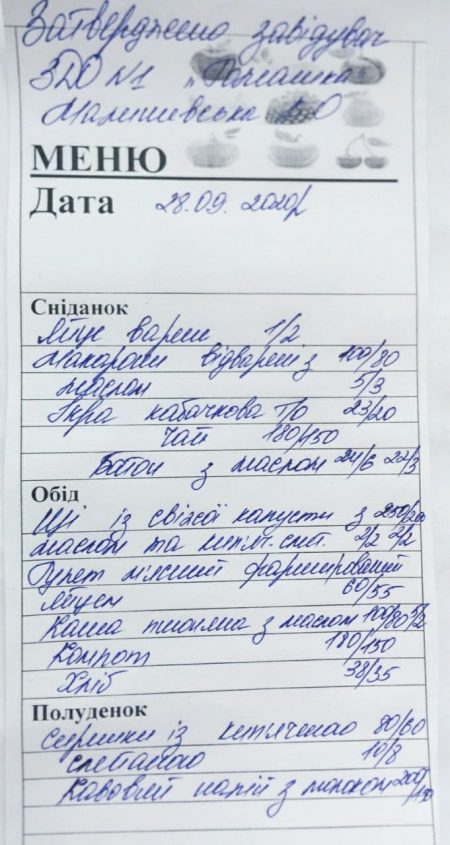 Затверджено завідувач
ЗДО №1 "Ромашка"
Малишевська
МЕНЮ
Дата 28.09.2020р
Сніданок
Яйце варене 1/2
Макарони відварені з 100/80
маслом 5/3
Ікра кабачкова т/о 23/20
Чай 180/150
Батон з маслом 24/6 22/3
Обід
Щі із свіжої капусти з 250/200
маслом та кип'яч. смет. 2/2 2/2
Рулет м'ясний фарширований
яйцем 60/55
Каша пшоняна з маслом 100/80 5/2
Компот 180/150
Хліб 38/35
Полуденок
Сирники із кип'яченою 80/60
сметаною 10/8
Кавовий напій з молоком 200/150